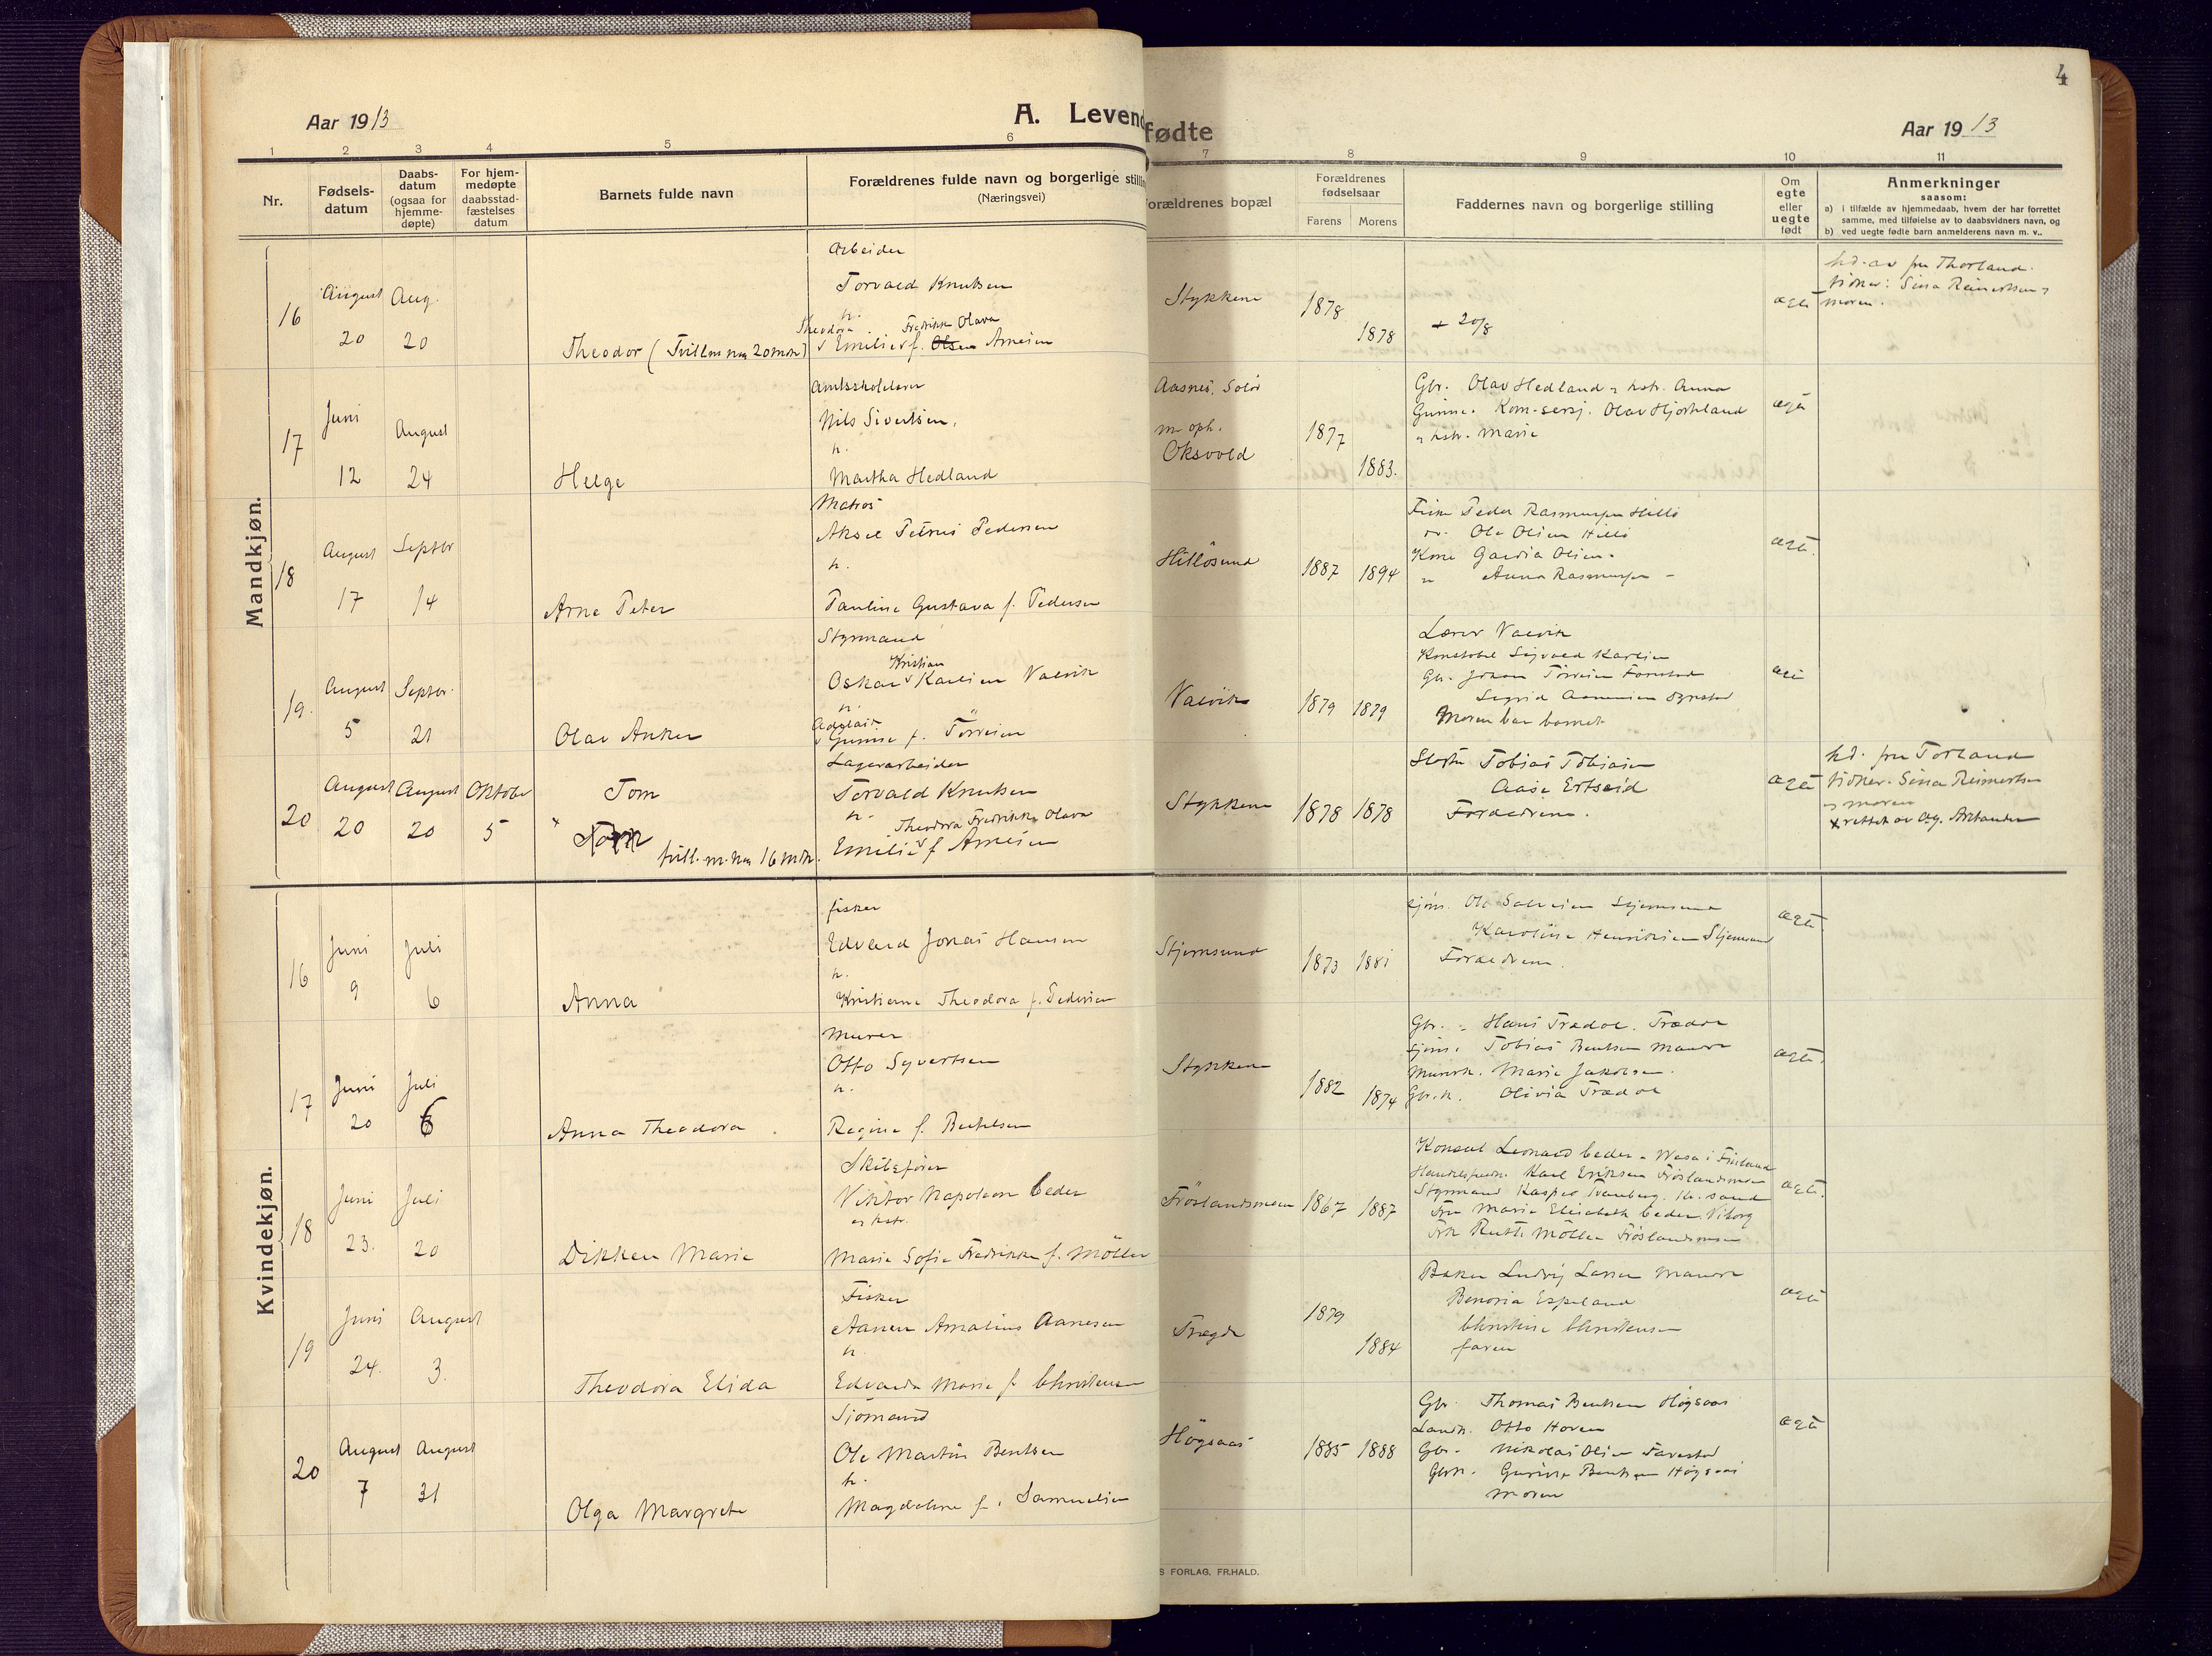 4
Aar 1913
A. Levend
fødte
Aar 1913
1 2 3 4 5 6 7 8 9 10 11
Nr.
Fødsels-
datum
Daabs-
datum
(ogsaa for
hjemme-
døpte)
For hjem-
medøpte
daabsstad-
fæstelses
datum
Barnets fulde navn
Forældrenes fulde navn og borgerlige stillin
(Næringsvei)
orældrenes bopæl
Forældrenes
fødselsaar
Farens Morens
Faddernes navn og borgerlige stilling
Om
egte
eller
uegte
født
Anmerkninger
saasom:
a) i tilfælde av hjemmedaab, hvem der har forrettet
samme, med tilføielse av to daabsvidners navn, og
b) ved uegte fødte barn anmelderens navn m. v..
Mandkjøn.
16
August 20
Aug. 20
Theodor (Tvilling m. no 20 mdk)
Arbeider
Torvald Knutsen
h.
Theodora Fredrikke Olava
Emilie f. Olsen Arnesen
Stykkene
1878 1878
+ 20/8
egte
hd. av fru Thorland.
vidner: Sina Reinertsen &
moren.
17
Juni 12
August 24
Helge
Amtsskolelærer
Nils Sivertsen,
h.
Martha Hedland
Aasnes, Solør
m. oph.
Oksvold
1877 1883.
Gbr. Olav Hedland & hstr. Anna
Gunine. Kom-sersj. Olav Hjorteland
& hstr. Marie
egte
18
August 17
Septbr 14
Arne Peter
Matros
Aksel Petrus Pedersen
h.
Pauline Gustava f. Pedersen
Hillösund
1887 1894
Fisker Peder Rasmussen Hillö
Ole Olsen Hillö
Kone Gardia Olsen
" Anna Rasmussen -
egte.
19.
August 5
Septbr. 21
Olav Anker
Styrmand
Kristian
Oskar Karlsen Valvik
h.
Adelair
Gunine f. Törresen
Valvik
1879 1879
Lærer Valvik
Konstabel Sigvald Karlsen
Gbr. Johan Törresen
Sigrid
Moren bar barnet
egte
20
August 20
August 20
Oktober 5
Tom
tvill. m. no 16 mdk.
Lagerarbeider
Torvald Knutsen
h.
Theodora Fredrikke Olava
Emilie f Arnesen
Stykkene
1878 1878
Tobias Tobiasen
Aase Ertseid
Forældrene.
egte
hd. fru Torland
vidner. Sina Reinertsen
& moren
x rettet av
Kvindekjøn.
16
Juni 9
Juli 6
Anna
fisker
Edvard Jonas Hansen
h.
Kristiane Theodora f. Pedersen
Stjernsund
1873 1881
sjøm. Ole Salvesen Stjernsund
Karoline Henriksen Stjernsund
Forældrene.
egte
17
Juni 20
Juli 6
Anna Theodora
Murer
Otto Syvertsen
h.
Regine f. Berthelsen
Stykkene
1882 1874
Gbr. Hans Trædal. Trædal
sjøm. Tobias Bentsen
Murerk. Marie Jakobsen.
Gbr.k. Olivia Trædal
egte.
18
Juni 23.
Juli 20
Dikken Marie
Skibsfører
Viktor Napoleon Ceder
& hstr.
Marie Sofie Fredrikke f. Möller
Fröslandsmoen
1867 1887
Konsul Leonard Ceder - Wasa i Finland
Karl Eriksen Fröslandsmoen
Styrmand Kasper Kr. sand
Fru Marie Elisabeth Ceder. Viborg
Frk Ruth Möller Fröslandsmoen
egte.
19
Juni 24.
August 3.
Theodora Elida
Fisker
Aanen Amalius Aanesen
h.
Edvarda Marie f. Christensen
Trægde
1879 1884
Baker Ludvig Larsen
Benoria Espeland
Christine Christensen
faren
egte
20
August 7
August 31
Olga Margrete
Sjömand
Ole Martin Bentsen
h.
Magdalene f. Samuelsen
Högsaas
1885 1888
Gbr. Thomas Bentsen Högsaas
Landh. Otto Hoven
Gbr. Nikolai Olsen
Gbrk. Gurine Bentsen Högsaas
Moren
egte
S FORLAG, FR.HALD.